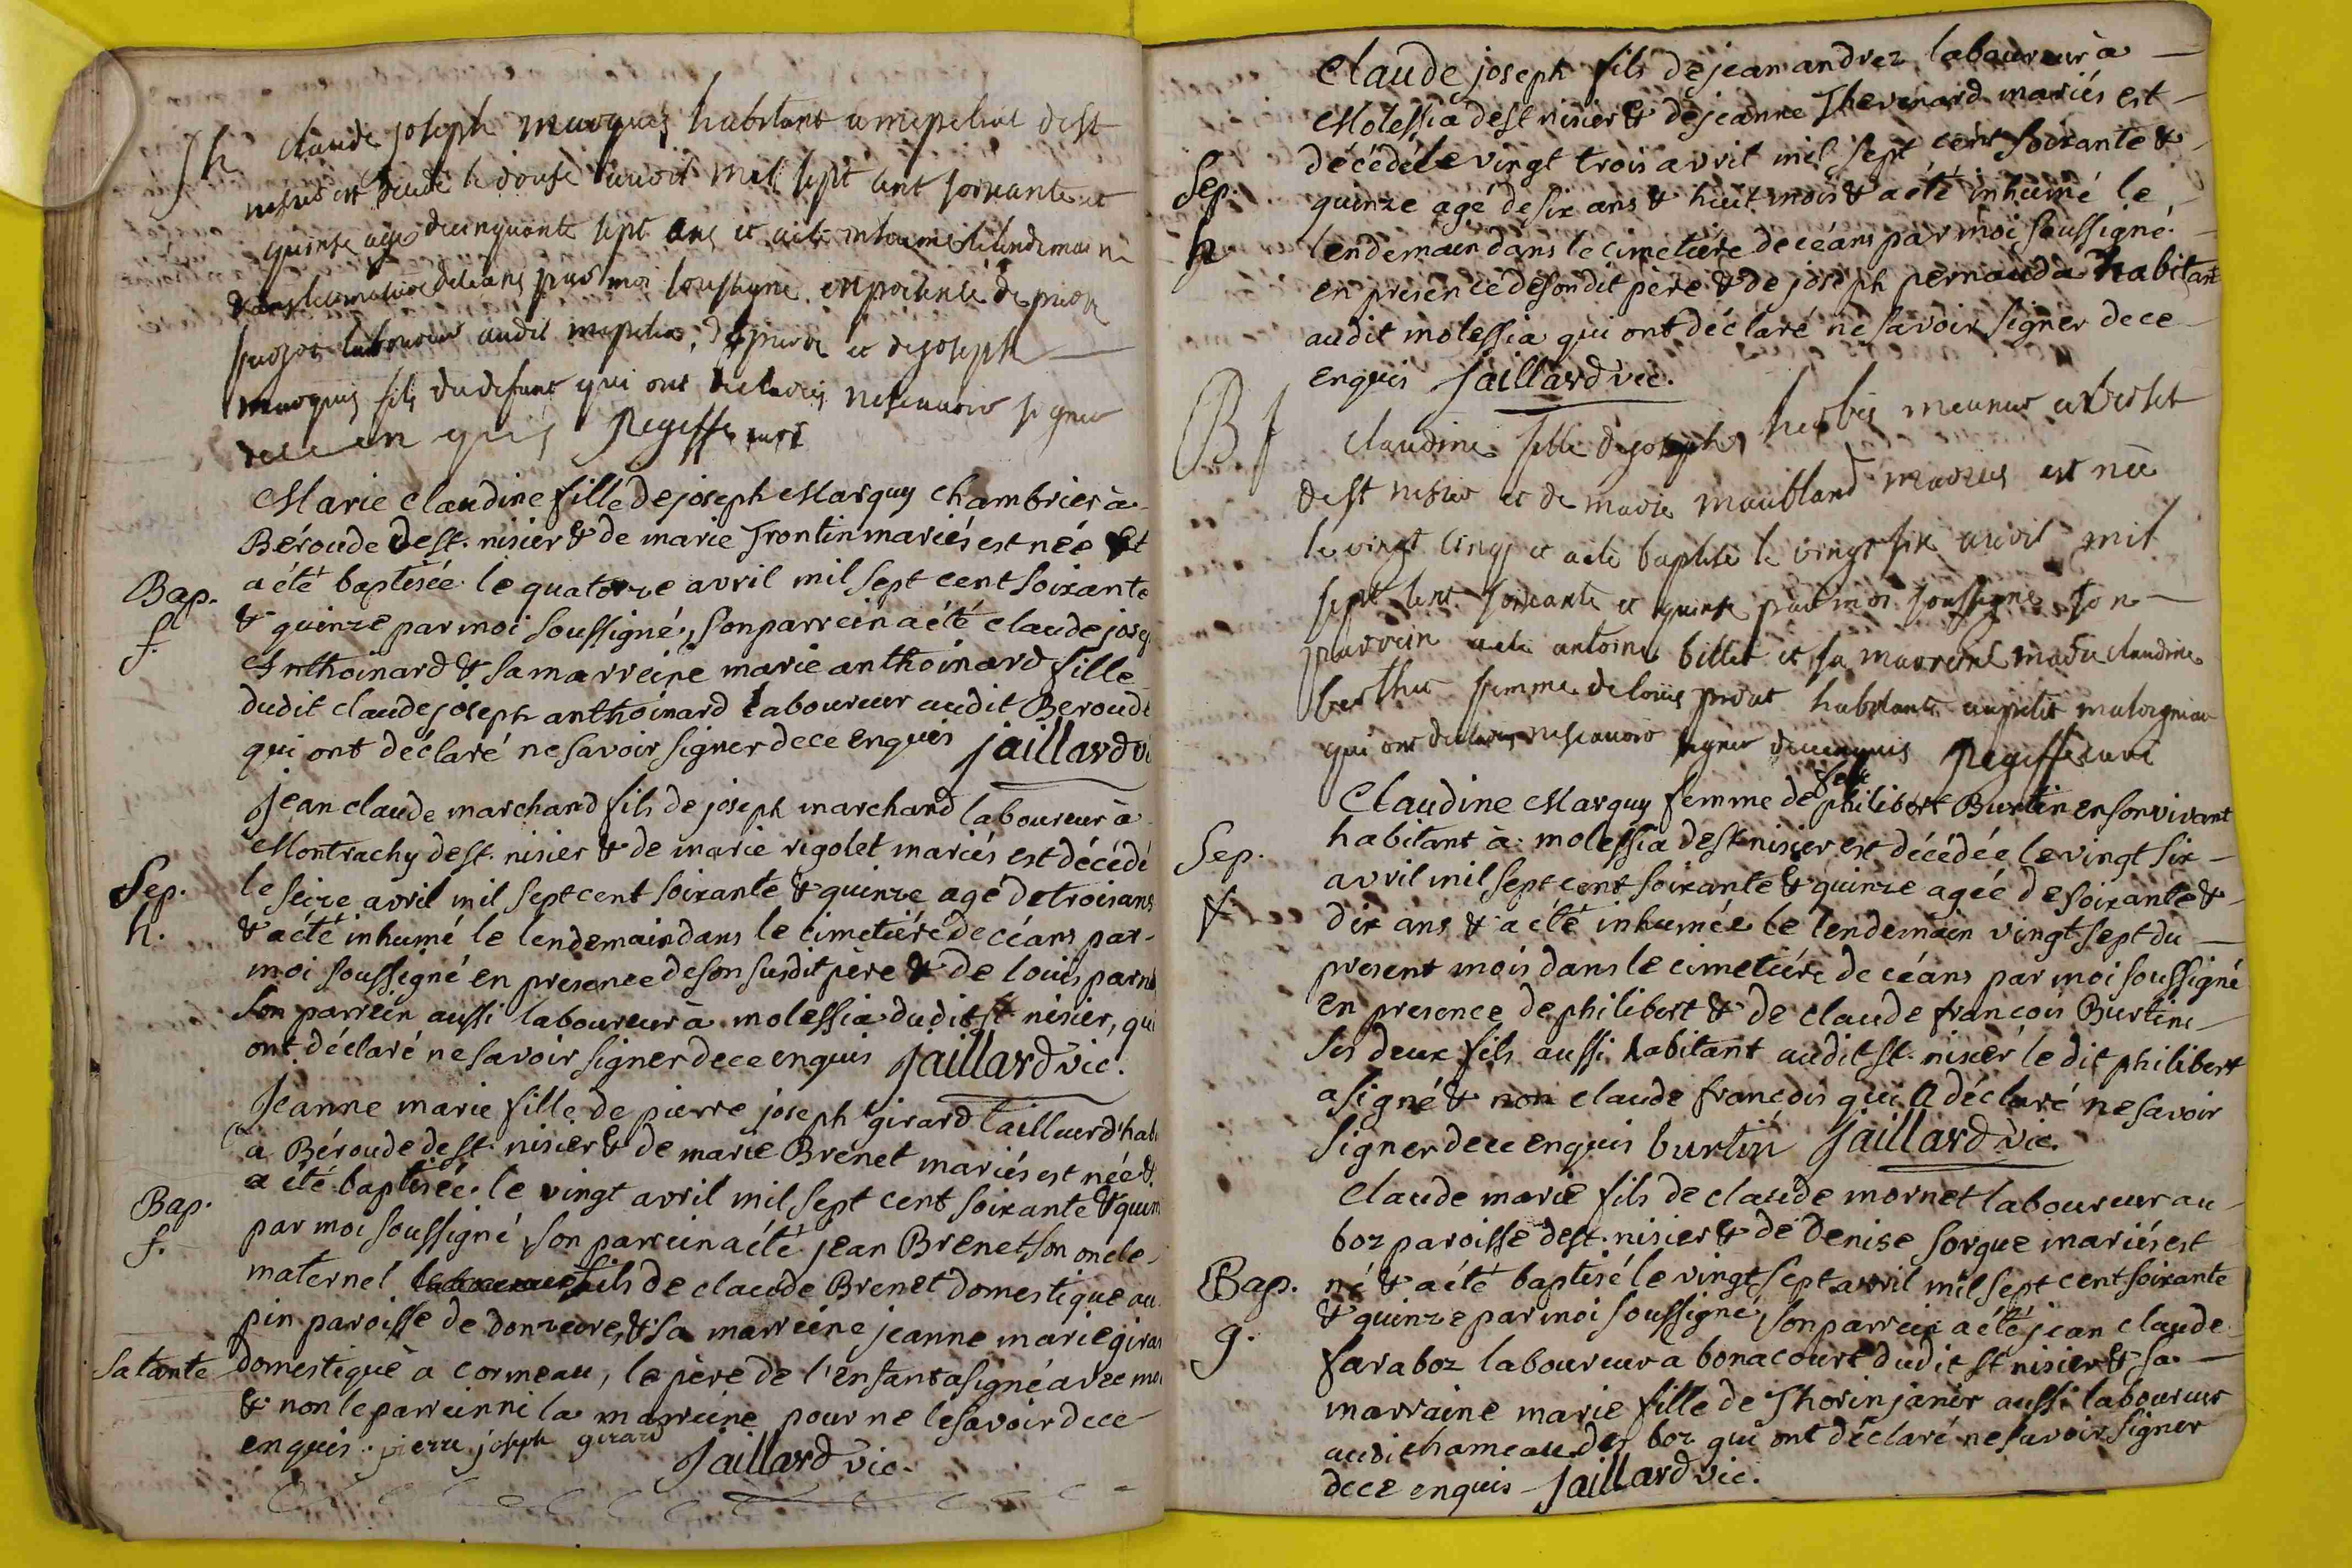 Sh
claude joseph marquis habitant a mepeliat de st
nisier est decede le douse avril mil sept cent soixante et
quinse agé de cinquante sept ans et a eté inhumé le lendemain
dans le cimetiere de ceans par moi soussigné en presence de
laboureur audit et de joseph
marquis fils du defunt qui ont declarés ne scauoir signer
de ce enquis Regeffe curé
Marie claudine fille de joseph Marguy chambrier à
Béroude de st. nisier & de marie Trontin mariés est née et
Bap.
a été baptisée le quatorze avril mil sept cent soixante
f.
& quinze par moi soussigné, son parrein a été claude josep
Anthoinard & sa marreine marie anthoinard fille
dudit claude joseph anthoinard laboureur audit Beroude
qui ont déclaré ne savoir signer de ce enquis jaillard vi
jean claude marchand fils de joseph marchand laboureur à
Montrachy de st. nisier & de marie rigolet mariés est décédé
Sep.
le seize avril mil sept cent soixante & quinze agé de trois ans
h.
& a été inhumé le lendemain dans le cimetiére de céans par
moi soussigné en presence de son susdit père & de louis
son parrein aussi laboureur à molessia dudit st nisier, qui
ont déclaré ne savoir signer de ce enquis jaillard vic.
Jeanne marie fille de pierre joseph girard tailleur d'hab
a Béroude de st. nisier & de marie Brenet mariés est née &
a été baptisée le vingt avril mil sept cent soixante & quin
Bap.
par moi soussigné, son parrein a été jean Brenet son oncle
f.
maternel fils de claude Brenet domestique au
pin paroisse de donzeure, & sa marreine jeanne marie girar
sa tante
domestique à cormeau, le père de l'enfant a signé avec moi
& non le parrein ni la marreine pour ne le savoir de ce
enquis. pierre joseph girard
Jaillard vic.
Claude joseph fils de jean andrez laboureur à
Molessia de st nisier & de jeanne Thevenard mariés est
décédé le vingt trois avril mil sept cent soixante &
Sep.
quinze agé de six ans & huit mois & a été inhumé le
h
lendemain dans le cimetiére de céans par moi soussigné
en presence de son dit père & de joseph pernauda habitant
audit molessia qui ont déclaré ne savoir signer de ce
enquis Jaillard vic.
B f
claudine fille de joseph meunier a
de st nisier et de marie maubland mariés est née
le vingt cinq et a eté baptisé le vingt six avril mil
sept cent soixante et quinse par moi soussigné son
parrein a eté antoine billet et sa marreine marie claudine
berthet femme de louis habitants
qui ont declarés ne scauoir signer de ce enquis Regeffe curé
feu
Claudine Marguy femme de philibert Burtin en son vivant
habitant à molessia de st nisier est décédée le vingt six
Sep.
avril mil sept cent soixante & quinze agée de soixante &
f
dix ans & a été inhumée le lendemain vingt sept du
present mois dans le cimetiére de céans par moi soussigné
en presence de philibert & de claude françois Burtin
ses deux fils aussi habitant audit st. nisier le dit philibert
a signé & non claude françois qui a déclaré ne savoir
signer de ce enquis burtin Jaillard vic.
Claude marie fils de claude mornet laboureur au
boz paroisse de st. nisier & de Denise sorgue mariés est
Bap.
né & a été baptisé le vingt sept avril mil sept cent soixante
& quinze par moi soussigné, son parrein a été jean claude
g.
faraboz laboureur à bonacourt dudit st nisier & sa
marraine marie fille de Thorin janin aussi laboureur
audit hameau des boz qui ont déclaré ne savoir signer
de ce enquis Jaillard vic.